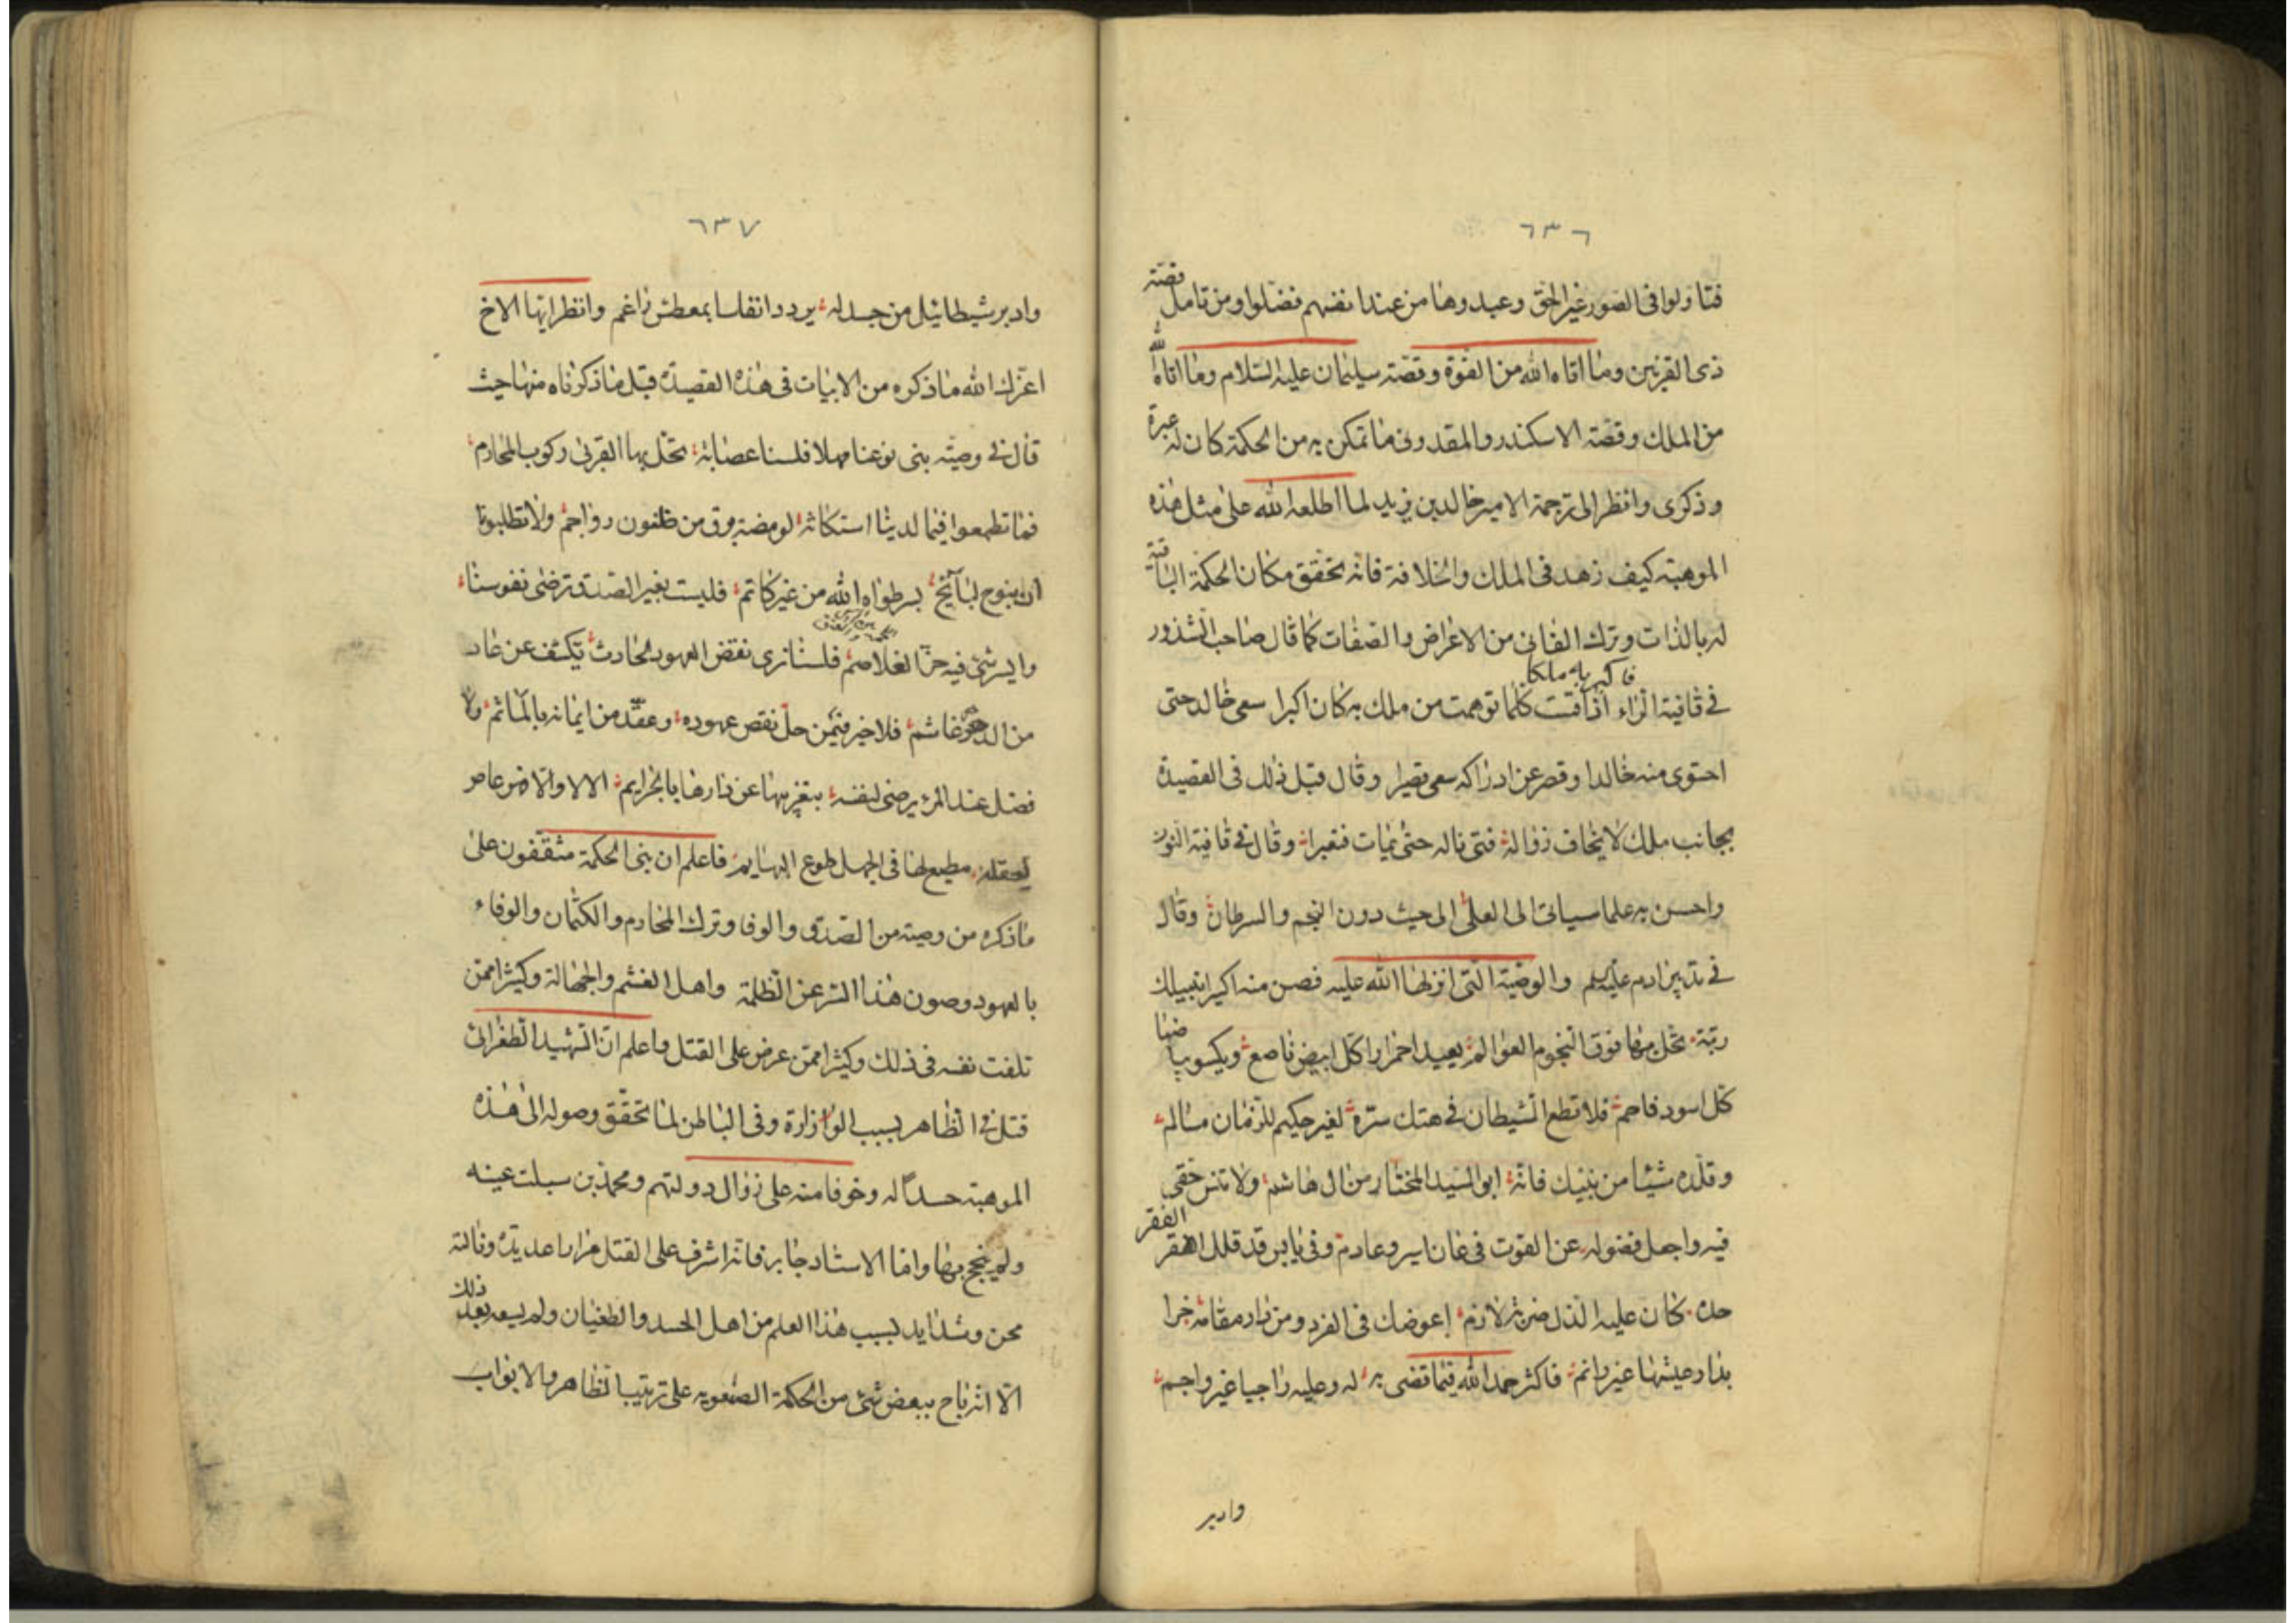 ٦٣٦
فتاولوا فى الصور غير الحق وعبدوها من عند انفسهم فضلوا ومن تامل قصته
ذى القرنين وما اتاه الله من القوة وقصته سليمان عليه السلام وما اتاه الله
من الملك وقصته الاسكندر والمقدونى ما تمكن به من الحكمة كان له عبرة
وذكرى وانظر الى ترجمة الامير خالد بن يزيد لما اطلعه الله على مثل هذه
الموهبته كيف زهد فى الملك والخلافة فانه تحقق مكان الحكمة الباقية
له بالذات وترك الفانى من الاعراض والصفات كما قال صاحب الشذور
فاكبر به ملكا
فى قافية الراء اذا قت كلما توهمت من ملك به كان اكبرا سعى خالد حتى
احتوى منه خالدا وقصر عن ادراكه سعى قصيرا وقال قبل ذلك فى القصيدة
بجانب ملك لا يخاف زواله فتى ناله حتى يمات فقيرا وقال فى قافية النون
واحسن به علما سياتى الى العلى الى حيث دون النجم والسرطان وقال
فى تدبير ادم عليه سلم والوصية التى انزلها الله عليه فصن منه اكبرا بنيلك
رتبة تحل بها فوق النجوم العوالم يعيد احمرارا كل ابيض ناصع ويكسو بياضا
كل اسود فاحم فلا تطع الشيطان فى هتك سره لغير حكيم للزمان مسالم
وقلده شيئا من بنيك فانه ابو السيد المختار من ال هاشم ولا تنس حقى
فيه واجعل فضوله عن القوت فى عان اسير وعادم وفى يابس قد قلل الفقر
حده كان عليه الذل ضربة لازم اعوضك فى الفرد ومن دار مقامة خرا
بدار عيشها غير دائم فاكثر حمد الله فيما قضى به له وعليه واجبا غير واجم
وادبر
٦٣٧
وادبر شيطانيل من جدله يردد انفاسا بمعطس راغم وانظر ايها الاخ
اعزك الله ما ذكره من الابيات فى هذه القصيدة قبل ما ذكرناه منها حيث
قال فى وصيته بنى نوعنا مهلا فلسنا عصابة تحل بها القربى ركوب المحارم
فما تطمعوا فيما لدينا استكانة لومضة برق من ظنون رواجم ولا تطلبونا
ان نبوح لبائح بسر طواه الله من غير كاتم فليست بغير الصدق ترضى نفوسنا
وايسر شئ فيه حز الغلاصم فلسنا نرى نقض العهود لحادث تكشف عن عاد
من الدهر غاشم فلا خير فيمن حل نقص عهوده وعقد من ايمانه بالمآثم ولا
فضل عند المرء يرضى لنفسه بتغريبها عن دارها بالجرايم الا لا والا هو عاص
لعقله مطيع لها فى الجهل طوع البهايم فاعلم ان بنى الحكمة متفقون على
ما ذكره من وصيته من الصدق والوفا وترك المحارم والكتمان والوفاء
بالعهود وصون هذا السر عن الظلمة واهل الغشم والجهالة وكثيرا ممن
تلفت نفسه فى ذلك وكثيرا ممن عرض على القتل واعلم ان الشهيد الطغرائى
قتل فى الظاهر بسبب الوزارة وفى الباطن لما تحقق وصوله الى هذه
الموهبته حسدا له وخوفا منه على زوال دولتهم ومحمد بن سبلت عينه
ولم ينجح بها واما الاستاد جابر فانه اشرف على القتل مرارا عديدة ونالته
محن وشدايد بسبب هذا العلم من اهل الحسد والطغيان ولم يسعه بعد ذلك
الا ان باح ببعض شئ من الحكمة الصنعويه على ترتيب الظاهر والابواب